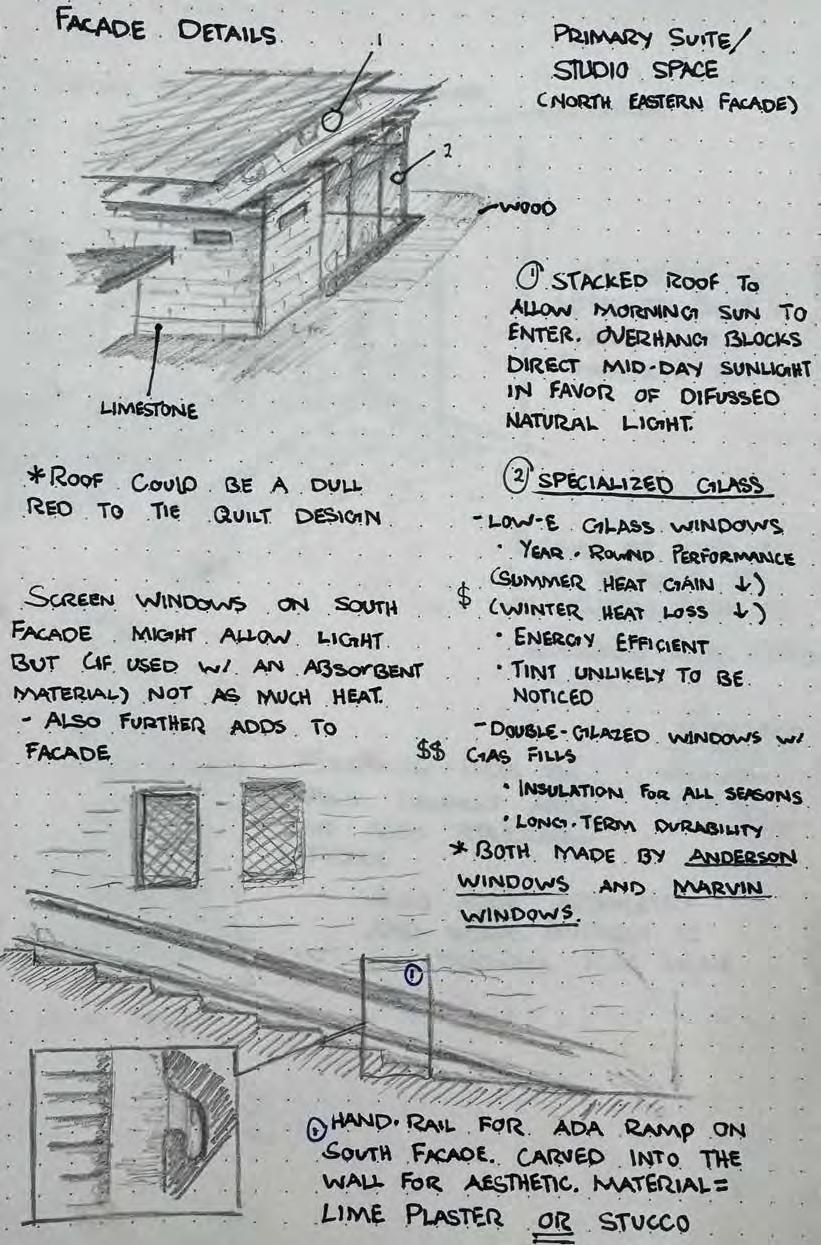 FACADE DETAILS
PRIMARY SUITE/
STUDIO SPACE
(NORTH EASTERN FACADE)
1
2
WOOD
LIMESTONE
① STACKED ROOF TO
ALLOW MORNING SUN TO
ENTER. OVERHANG BLOCKS
DIRECT MID-DAY SUNLIGHT
IN FAVOR OF DIFUSSED
NATURAL LIGHT.
*ROOF COULD BE A DULL
RED TO TIE QUILT DESIGN
SCREEN WINDOWS ON SOUTH
FACADE MIGHT ALLOW LIGHT
BUT (IF USED W/ AN ABSORBENT
MATERIAL) NOT AS MUCH HEAT.
- ALSO FURTHER ADDS TO
FACADE
② SPECIALIZED GLASS
- LOW-E GLASS WINDOWS
• YEAR-ROUND PERFORMANCE
$ (SUMMER HEAT GAIN ↓)
(WINTER HEAT LOSS ↓)
• ENERGY EFFICIENT
• TINT UNLIKELY TO BE
NOTICED
- DOUBLE-GLAZED WINDOWS W/
$$ GAS FILLS
• INSULATION FOR ALL SEASONS
• LONG-TERM DURABILITY
* BOTH MADE BY ANDERSON
WINDOWS AND MARVIN
WINDOWS.
①
① HAND-RAIL FOR ADA RAMP ON
SOUTH FACADE. CARVED INTO THE
WALL FOR AESTHETIC. MATERIAL=
LIME PLASTER OR STUCCO